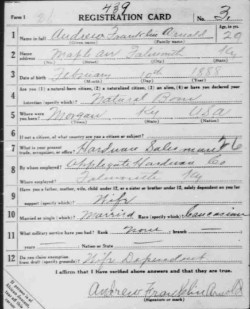 Form 1 439 REGISTRATION CARD No. 3
1 Name in full Andrew Franklin Arnold Age, in yrs. 29
(Given name) (Family name)
2 Home address Maple Ave Falmouth Ky
(No.) (Street) (City) (State)
3 Date of birth February 1888
(Month) (Day) (Year)
4 Are you (1) a natural-born citizen, (2) a naturalized citizen, (3) an alien, (4) or have you declared your
intention (specify which)? Natural Born
5 Where were you born? Morgan Ky USA
(Town) (State) (Nation)
6 If not a citizen, of what country are you a citizen or subject?
7 What is your present trade, occupation, or office? Hardware Salesman
8 By whom employed? Applegate Hardware Co
Where employed? Falmouth Ky
9 Have you a father, mother, wife, child under 12, or a sister or brother under 12, solely dependent on you for
support (specify which)? Wife
10 Married or single (which)? Married Race (specify which)? Caucasian
11 What military service have you had? Rank none ; branch
years Nation or State
12 Do you claim exemption from draft (specify grounds)? Wife Dependent
I affirm that I have verified above answers and that they are true.
Andrew Franklin Arnold
(Signature or mark)